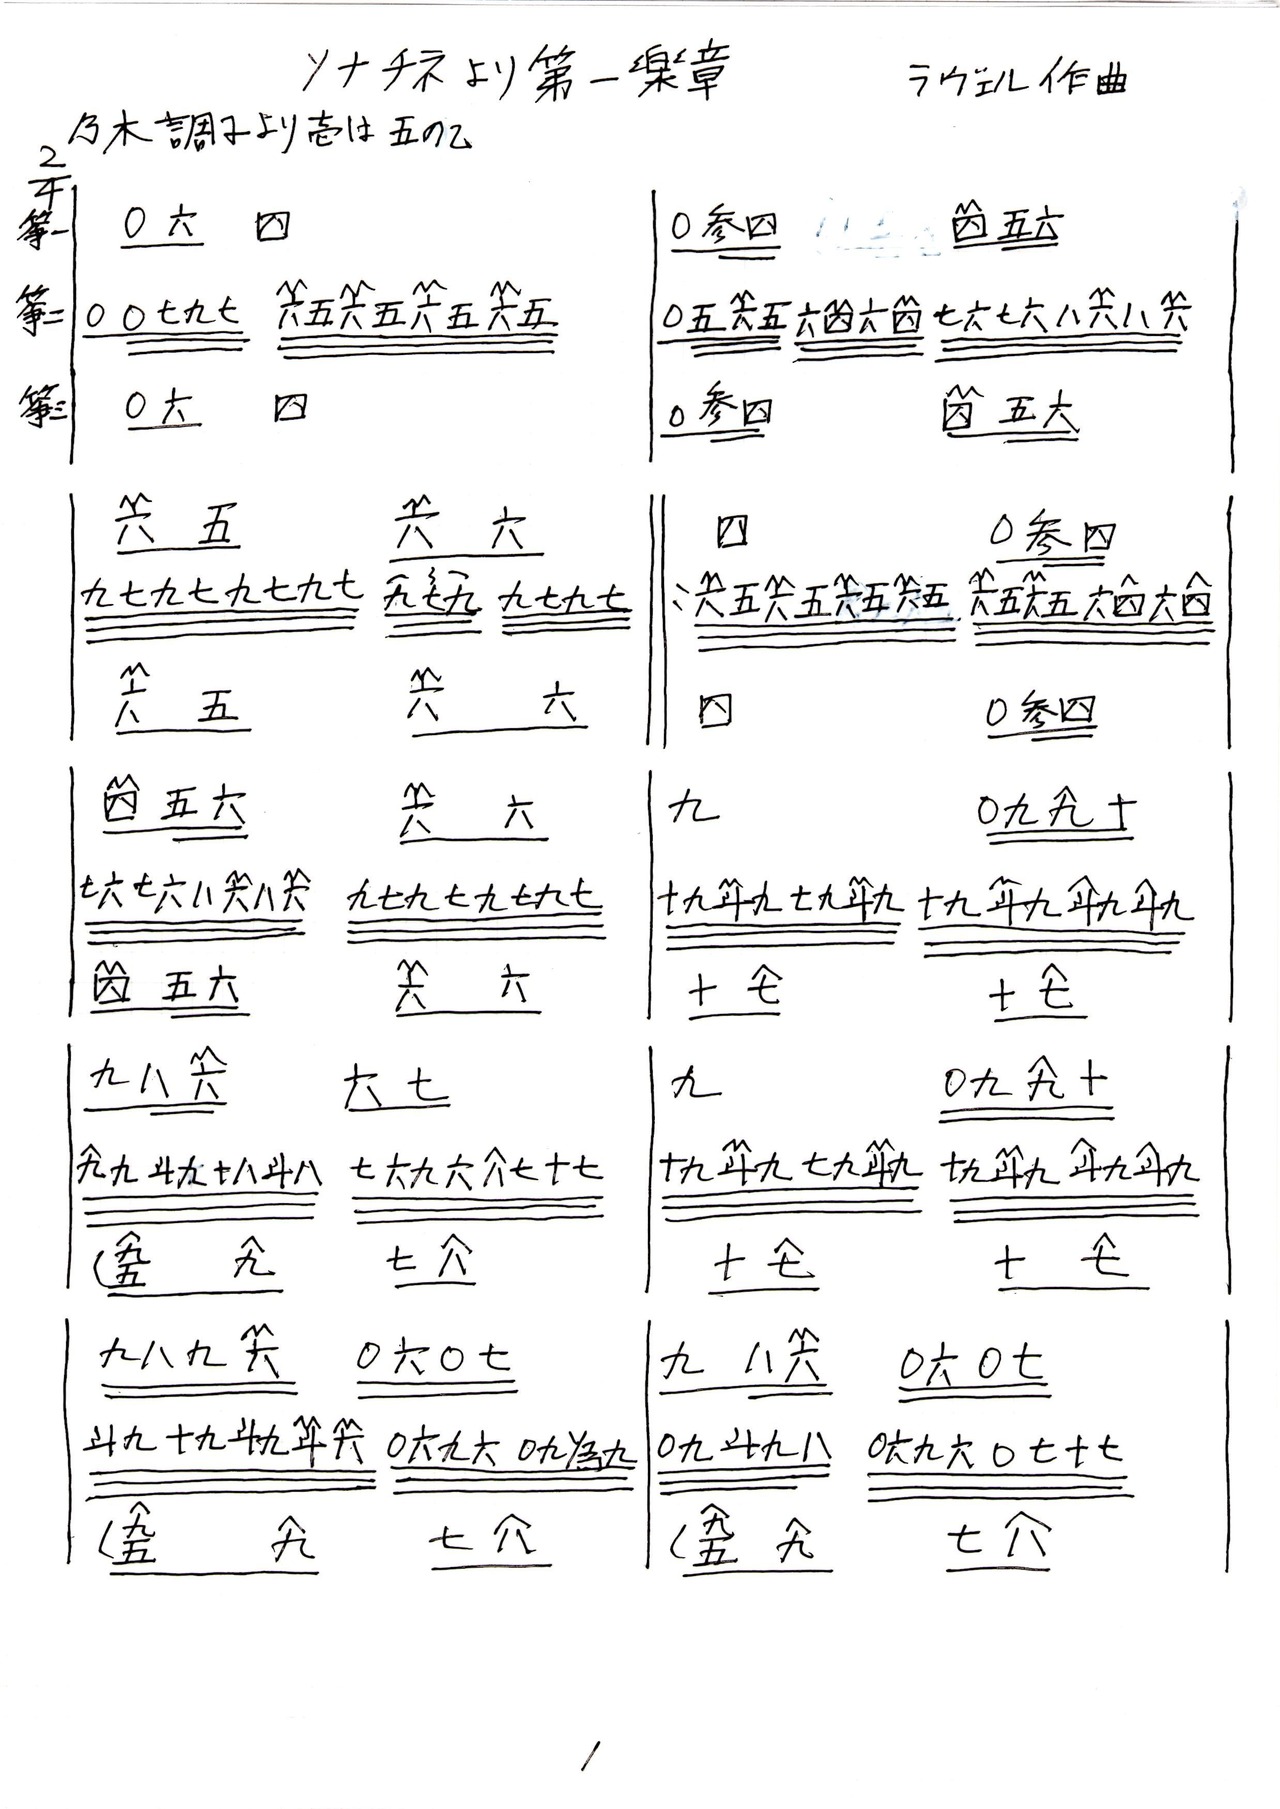 ソナチネより第一楽章 ラヴェル作曲
乃木調子より壱は五の乙
2/4
箏一 0六 四 0参四 四五六
箏二 00七九七 六五六五六五六五 0五六五六四六四 七六七六八六八六
箏三 0六 四 0参四 四五六
六五 六六 四 0参四
九七九七九七九七 九七九九七九七 六五六五六五六五 六五六五六四六四
六五 六六 四 0参四
四五六 六六 九 0九九十
七六七六八六八六 九七九七九七九七 十九斗九七九斗九 十九斗九斗九斗九
四五六 六六 十七 十七
九八六 六七 九 0九九十
九九斗九十八斗八 七六九六八七十七 十九斗九七九斗九 十九斗九斗九斗九
九五 九 七八 十七 十七
九八九六 0六0七 九八六 0六0七
斗九十九斗九斗六 0六九六0九為九 0九斗九八 0六九六0七十七
九五 九 七八 九五 九 七八
1